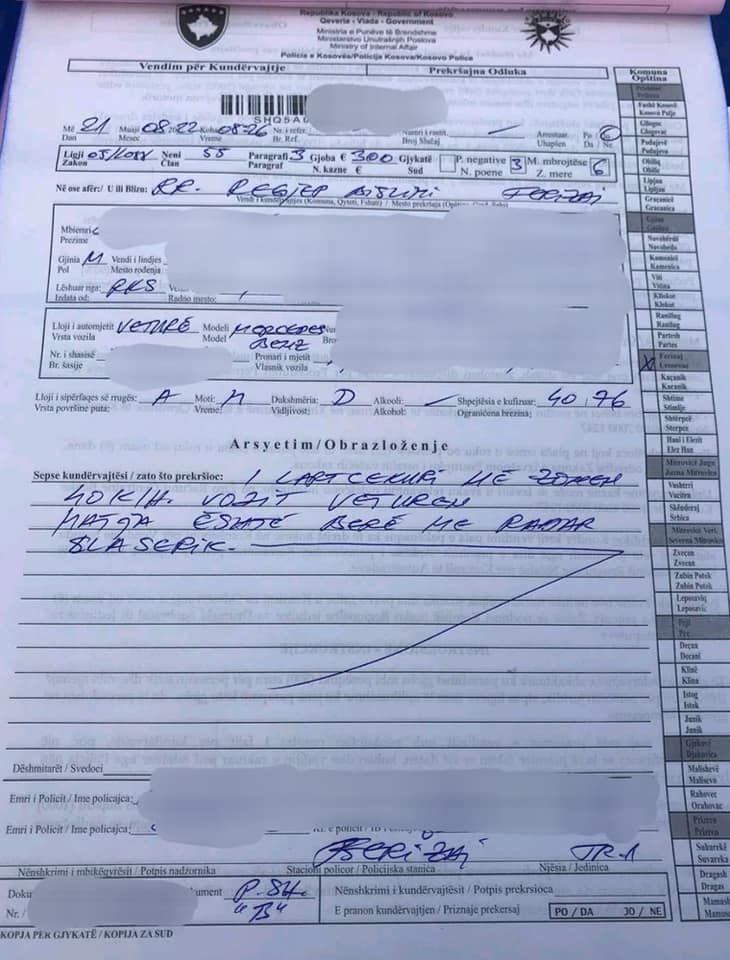 Republika e Kosovës - Republic of Kosovo
Qeveria - Vlada - Government
Ministria e Punëve të Brendshme
Ministarstvo Unutrašnjih Poslova
Ministry of Internal Affair
Policia e Kosovës/Policija Kosova/Kosovo Police
Vendim për Kundërvajtje Prekršajna Odluka
Komuna
Opština
SHQ5A0
Më 21 Muaji 08 2022 Koha 08:26 Nr. i refer.
Dan Mesec Vreme Br. Ref. Broj Slučaj Arrestuar Uhapšen Po Jo Da Ne
Ligji 05/L088 Neni 55 Paragrafi 3 Gjoba € 300 Gjykatë P. negative 3 M. mbrojtëse 6
Zakon Član Paragraf N. kazne € Sud N. poene Z. mere
Në ose afër:/ U ili Blizu: RR. REGJEP BISLIMI FERIZAJ
Mbiemri
Prezime
Gjinia M Vendi i lindjes
Pol Mesto rođenja
Lëshuar nga: RKS
Izdata od: Radno mesto:
Lloji i automjetit VETURË Modeli MERCEDES
Vrsta vozila Model BENZ
Nr. i shasisë Pronari i mjetit
Br. šasije Vlasnik vozila
Lloji i sipërfaqes së rrugës: A Moti: M Dukshmëria: D Alkooli: Shpejtësia e kufizuar: 40 76
Vrsta površine puta: Vreme: Vidljivost: Alkohol: Ograničena brzina:
Arsyetim/Obrazloženje
Sepse kundërvajtësi / zato što prekršioc: I LARTCEKURI NË ZONEN
40 K/H. VOZIT VETUREN
MATJA ËSHTË BERË ME RADAR
Dëshmitarët / Svedoci
Emri i Policit / Ime policajca:
Emri i Policit / Ime policajca:
FERIZAJ TR-1
Nënshkrimi i mbikëqyrësit / Potpis nadzornika Stacioni policor / Policijska stanica Njësia / Jedinica
Doku ument P.SH. Nënshkrimi i kundërvajtësit / Potpis prekrsioca
Nr. / "B" E pranon kundërvajtjen / Priznaje prekersaj PO / DA JO / NE
KOPJA PËR GJYKATË / KOPIJA ZA SUD
Fushë Kosovë
Kosovo Polje
Gllogoc
Glogovac
Podujevë
Podujevo
Obiliq
Obilić
Lipjan
Lipljan
Graçanicë
Gracanica
Novobërdë
Novo Brdo
Kamenicë
Kamenica
Viti
Vitina
Kllokot
Klokot
Ranillug
Ranilug
Partesh
Parteš
X Ferizaj
Urosevac
Kaçanik
Kacanik
Shtime
Stimlje
Shtërpcë
Sterpce
Hani i Elezit
Elez Han
Mitrovicë Jugu
Juzna Mitrovica
Vushtrri
Vucitrn
Skënderaj
Srbica
Mitrovicë Veri,
Severna Mitrovica
Zveçan
Zvecan
Zubin Potok
Zubin Potok
Leposaviq
Leposavic
Pejë
Pec
Deçan
Decani
Klinë
Klina
Istog
Istok
Junik
Junik
Gjakovë
Djakovica
Malishevë
Mališevo
Rahovec
Orahovac
Prizren
Prizren
Suharekë
Suvareka
Dragash
Dragas